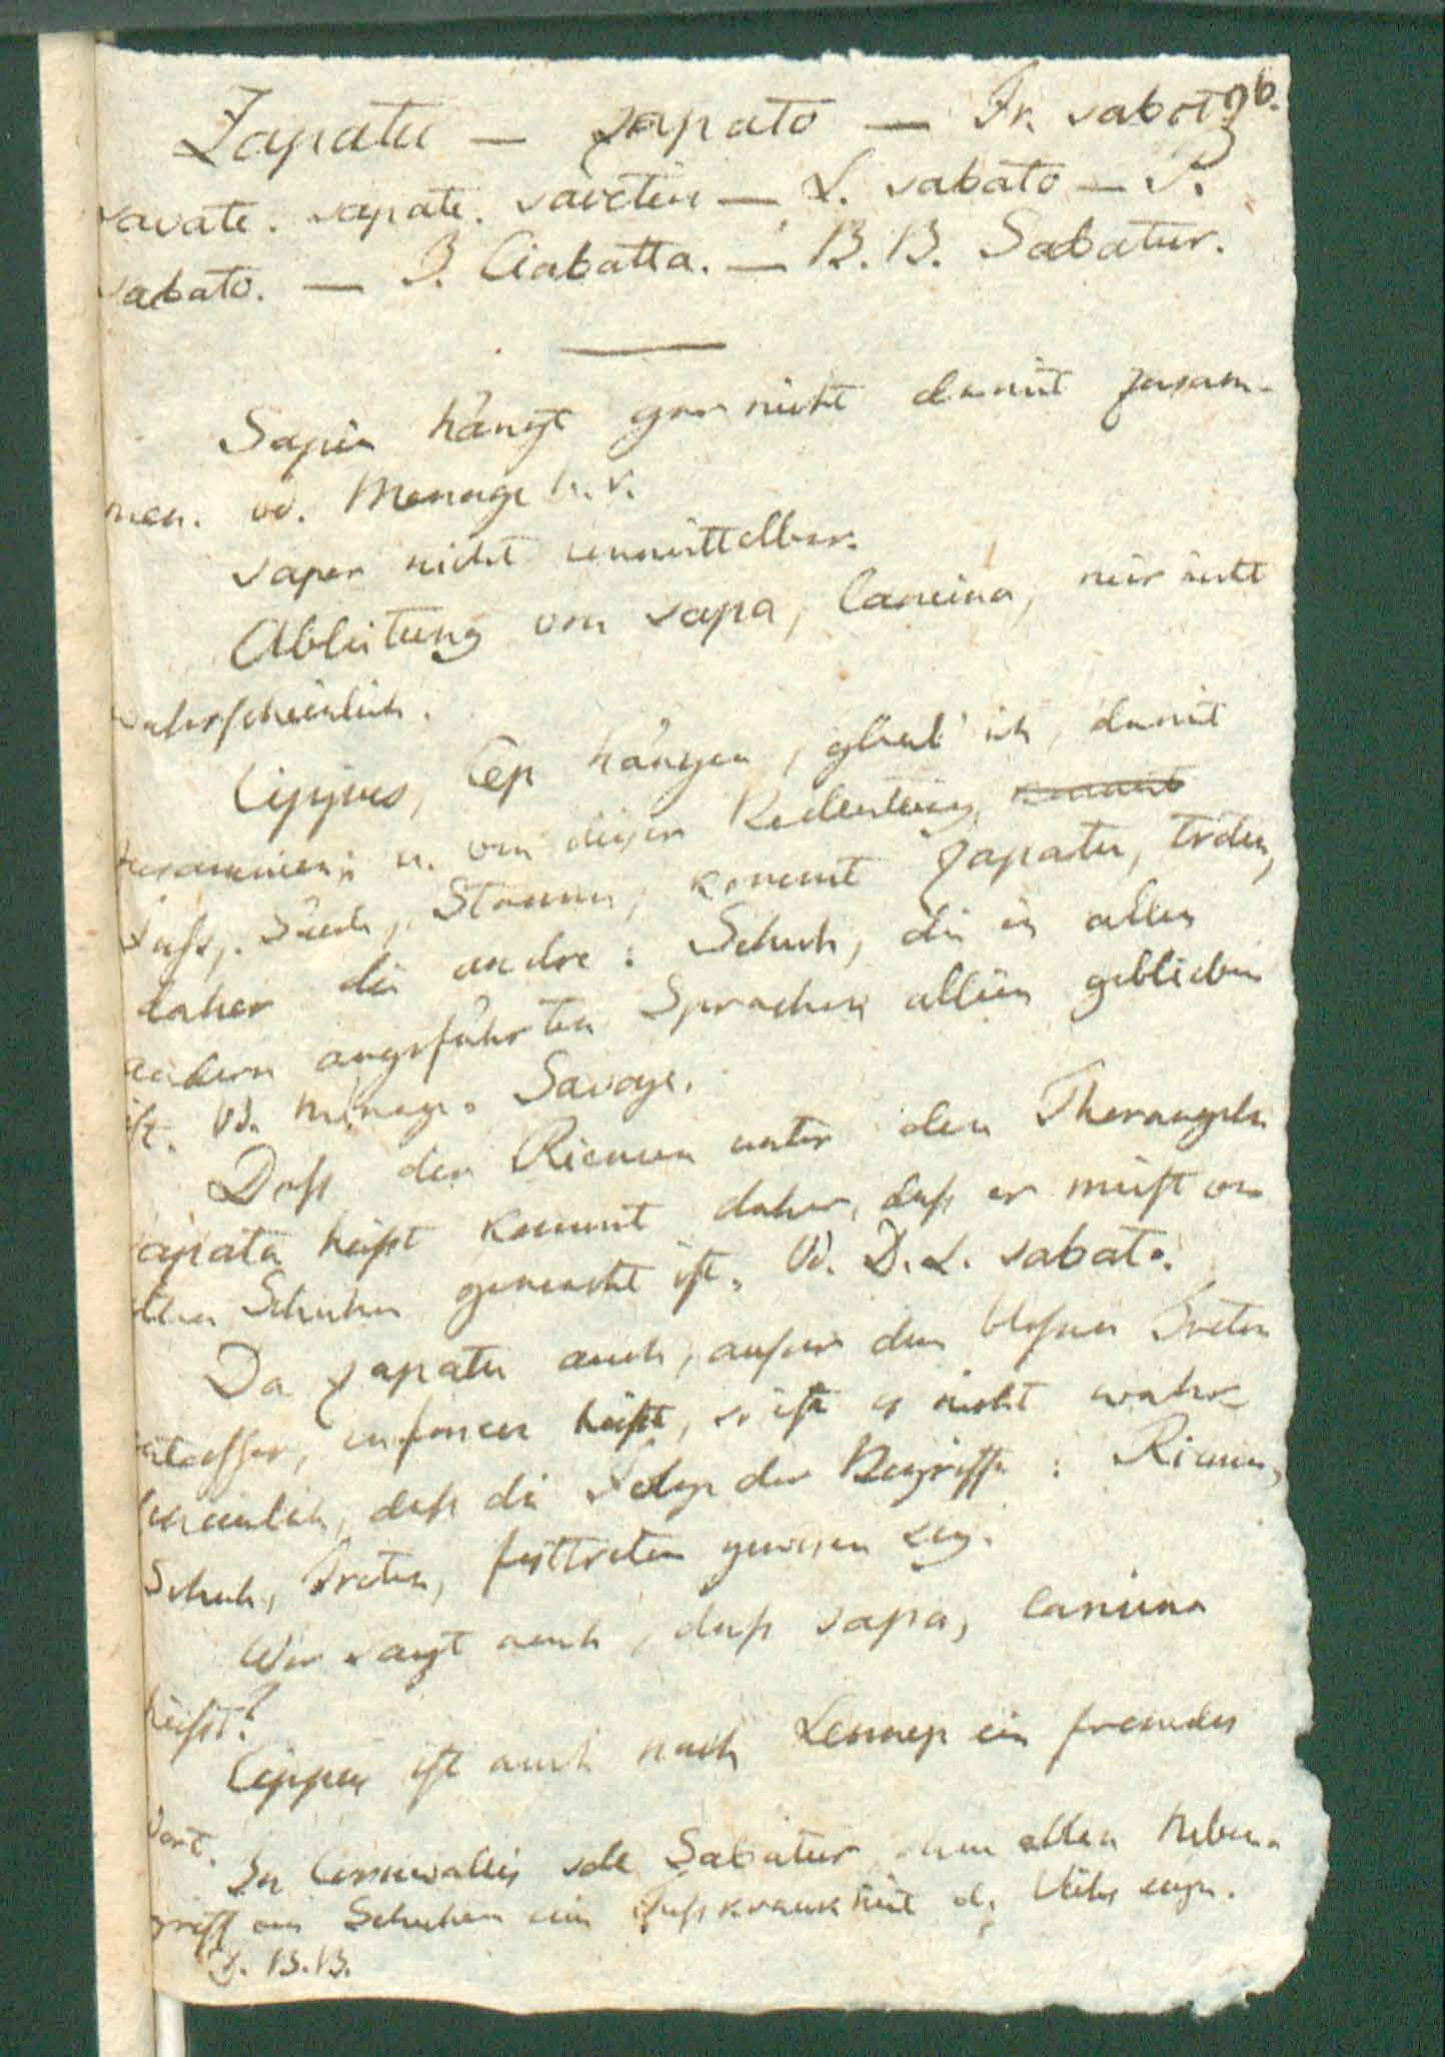 Zapatu — zapato — Fr. sabot 96.
savate. sapate. savetier — L. sabato — S.
sabato. — I. Ciabatta. — B. B. Sabatur.
Sapin hängt gar nicht damit zusam-
men. vd. Menage h. v.
saper nicht unmittelbar.
Ableitung von sapa, lamina, mir nicht
wahrscheinlich.
Cippus, Cep hängen, glaub' ich, damit
zusammen; u. von dieser Bedeutung,
Fuſs, Säule, Stamm, kommt zapatu, treten,
daher die andre: Schuh, die in allen
andern angeführten Sprachen allein geblieben
ist. Vd. Menage. Savate.
Daſs der Riemen unter den Thorangeln
zapata heiſst kommt daher, daſs er meist von
alten Schuhen gemacht ist. Vd. D. L. sabato.
Da zapatu auch, auſser dem bloſsen Treten
entasser, enfoncer heiſst, so ist es nicht wahr-
scheinlich, daſs die Folge der Begriffe: Riemen,
Schuh, Treten, festtreten gewesen sey.
Wer sagt auch, daſs sapa, lamina
heiſst?
Cippus ist auch nach Lennep ein fremdes
Wort.
In Cornwallis soll Sabatur ohne allen Nebenbe-
griff von Schuhen eine Fuſskrankheit d. Viehs seyn.
V. B. B.